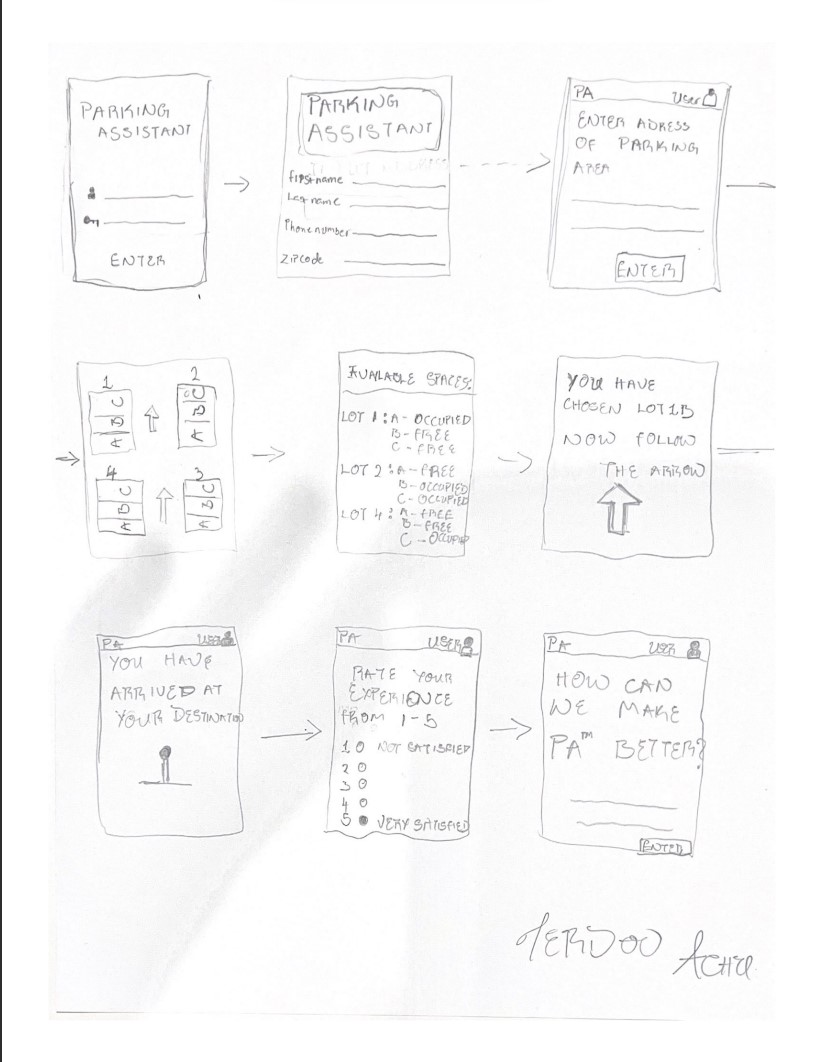 PARKING
ASSISTANT
ENTER
PARKING
ASSISTANT
First name
Last name
Phone number
ZIPCode
PA User
ENTER ADRESS
OF PARKING
AREA
ENTER
1 2
A B C
A B C
4 3
A B C
A B C
AVAILABLE SPACES:
LOT 1: A- OCCUPIED
B- FREE
C- FREE
LOT 2: A- FREE
B- OCCUPIED
C- OCCUPIED
LOT 4: A- FREE
B- FREE
C- OCCUPIED
YOU HAVE
CHOSEN LOT 1B
NOW FOLLOW
THE ARROW
PA USER
YOU HAVE
ARRIVED AT
YOUR DESTINATION
PA USER
RATE YOUR
EXPERIENCE
FROM 1-5
1 NOT SATISFIED
2
3
4
5 VERY SATISFIED
PA USER
HOW CAN
WE MAKE
PA™ BETTER?
ENTER